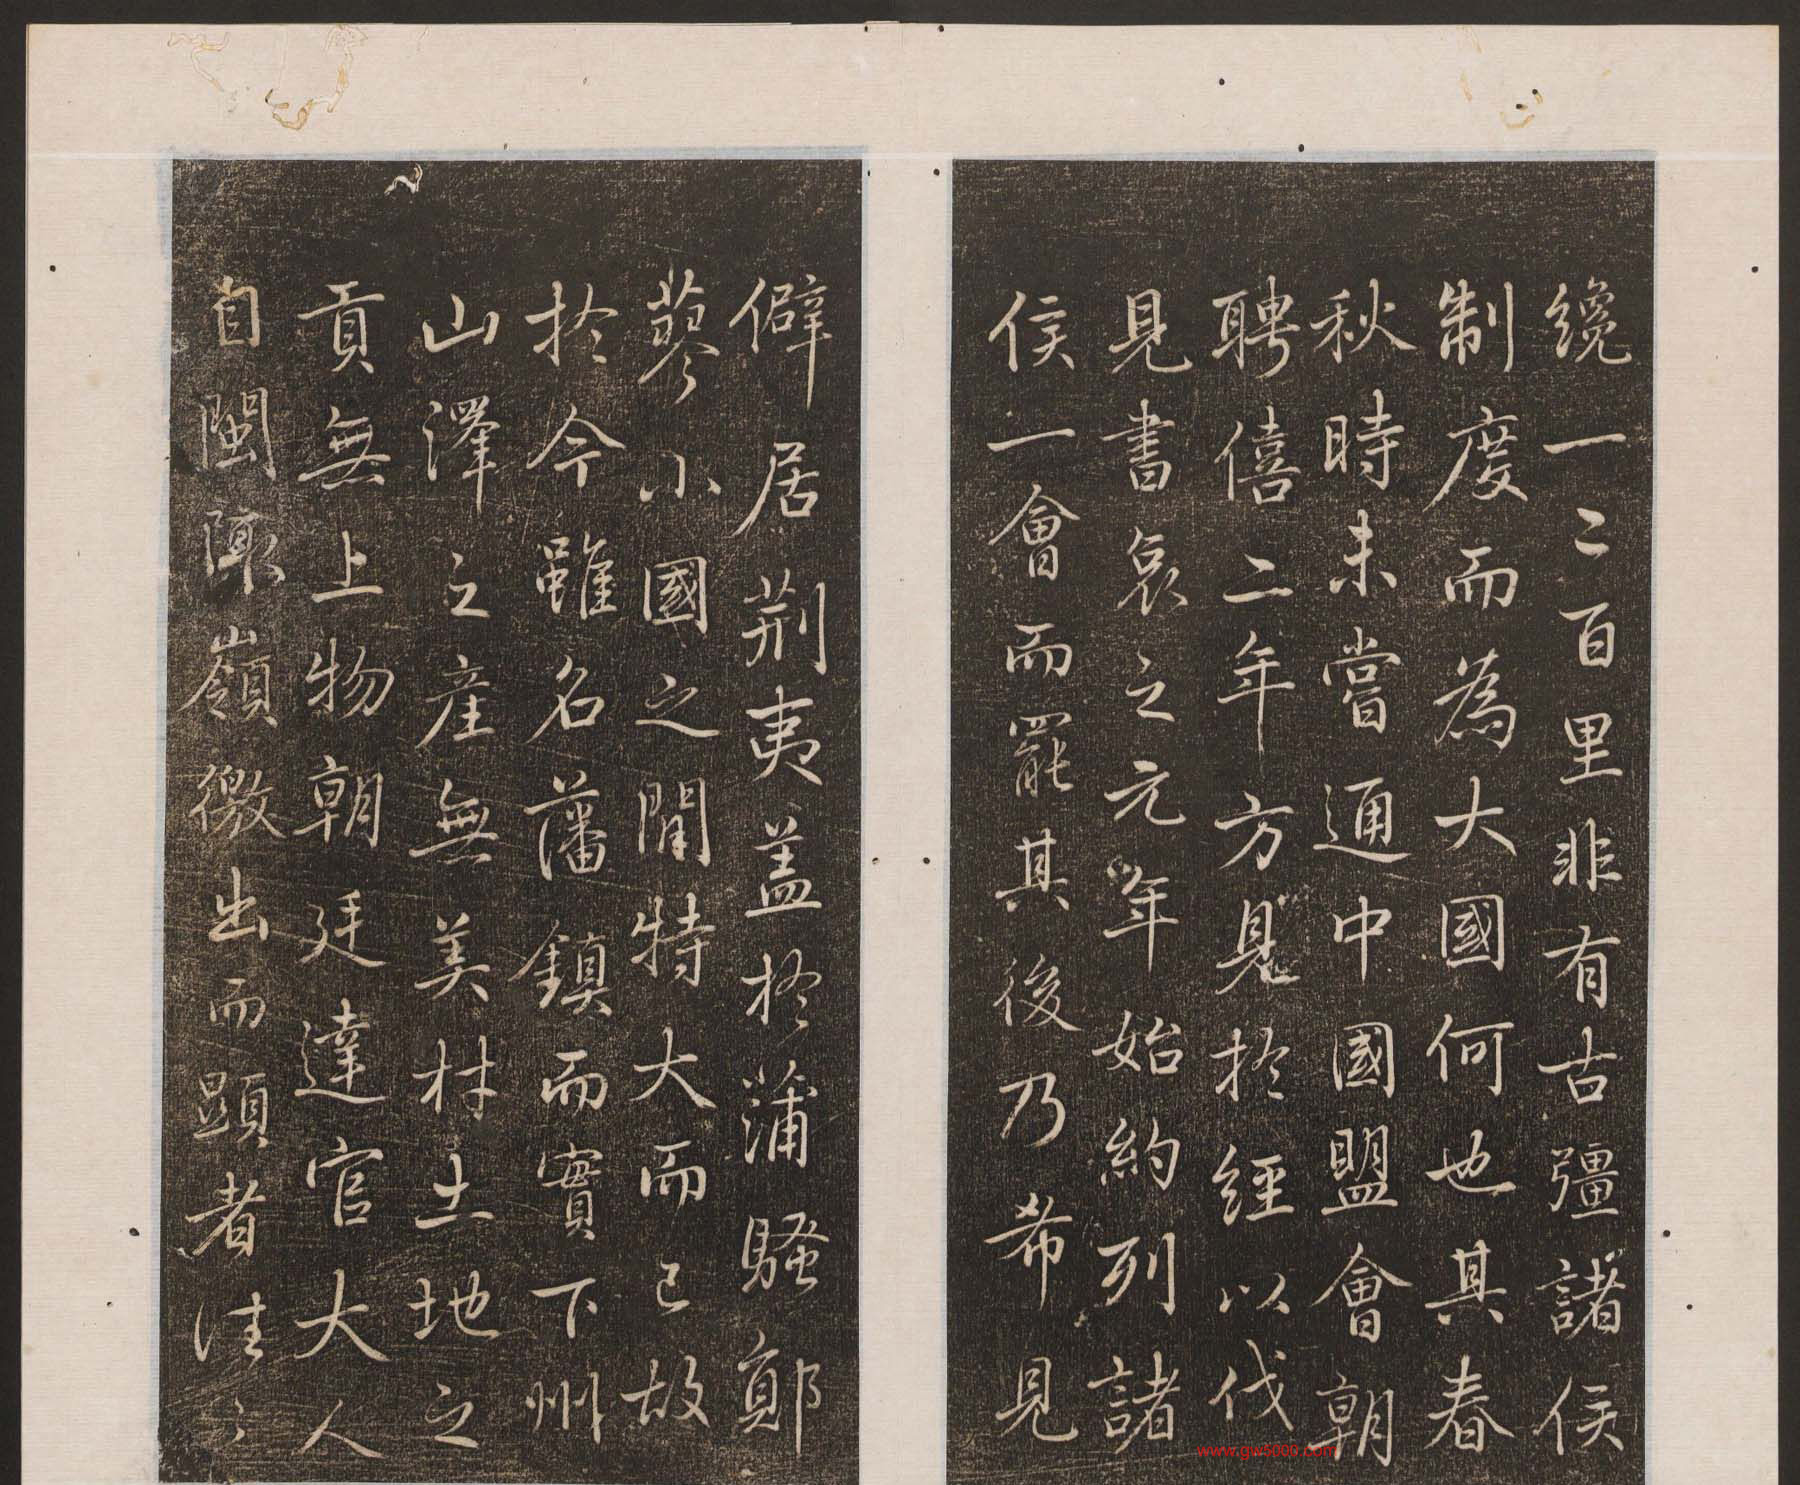 纔一二百里非有古彊諸侯
制度而為大國何也其春
秋時未嘗通中國盟會朝
聘僖二年方見於經以伐
見書哀之元年始約列諸
侯一會而罷其後乃希見
僻居荆夷盖於蒲騷鄖
蓼小國之間特大而已故
於今雖名藩鎮而實下州
山澤之產無美材土地之
貢無上物朝廷達官大人
自閩陬嶺徼出而顯者往々
www.gw5000.com